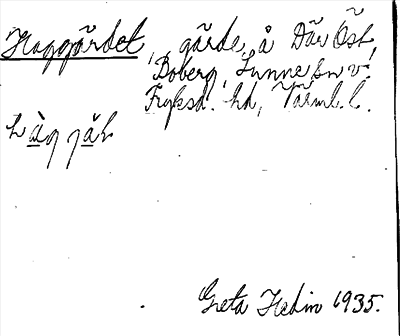 Haggärdet, gärde å Där Öst,
Boberg, Sunne sn v.
Fryksd. hd, Värml. l.
hàg gä̀ḷ
Greta Hedin 1935.